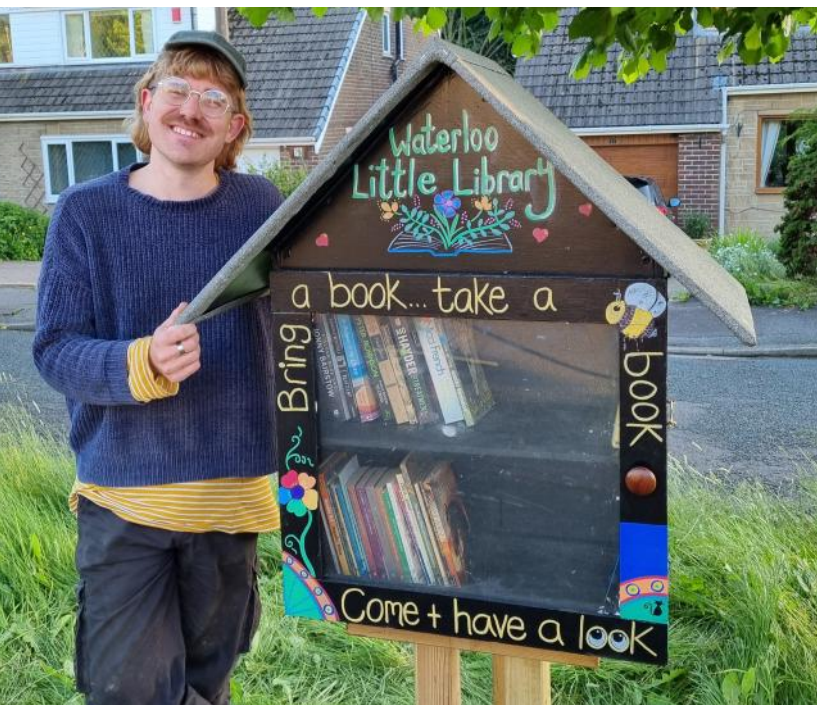 Waterloo
Little Library
Bring
a book... take a
book
Come + have a look
HAYDER